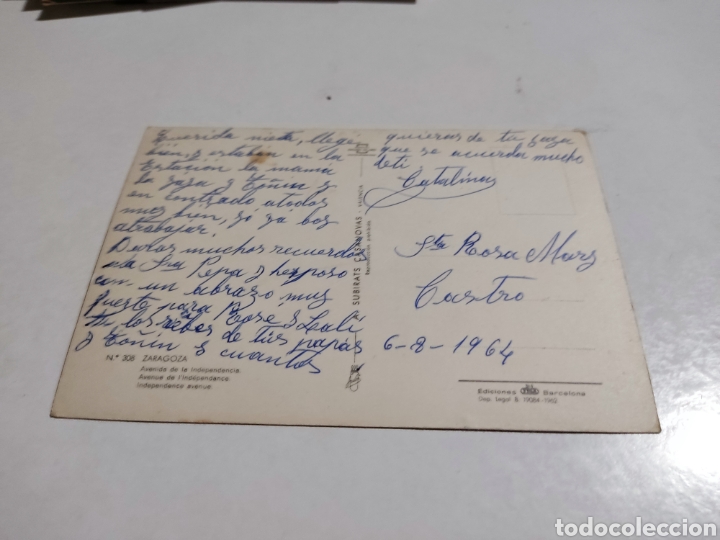 Querida nieta, llegé
bien, y estaban en la
Estación la mama
la yaya y Toñin y
en contrado atodos
muy bien, yo ya boy
atrabajar.
Daras muchos recuerdos
ala Sra Pepa y
con un abrazo muy
fuerte para Rose y Lali
tu los de tus papas
y Toñin y cuantos
quieras de tu yaya
que se acuerda mucho
deti
Catalina
Sta Rosa Mary
Castro
6-8-1964
SUBIRATS CASANOVAS - VALENCIA
N.º 308 ZARAGOZA
Avenida de la Independencia.
Avenue de l'Indépendance.
Independence avenue.
Ediciones Barcelona
Dep. Legal B. -1962
todocoleccion